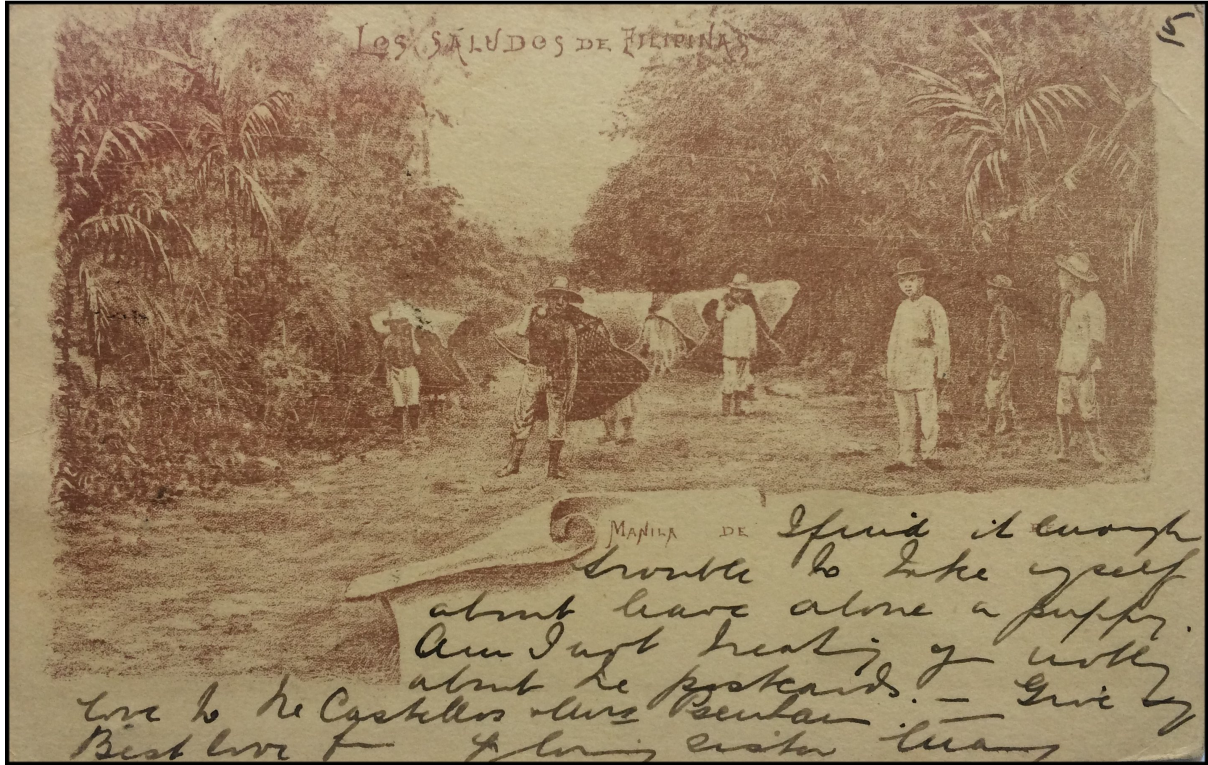 5
LOS SALUDOS DE FILIPINAS
MANILA DE
I find it enough
trouble to take myself
about leave alone a puppy.
Am I not treating you nobly
about the postcards. — Give my
love to the Castellos & Mrs
Best love from yr loving sister